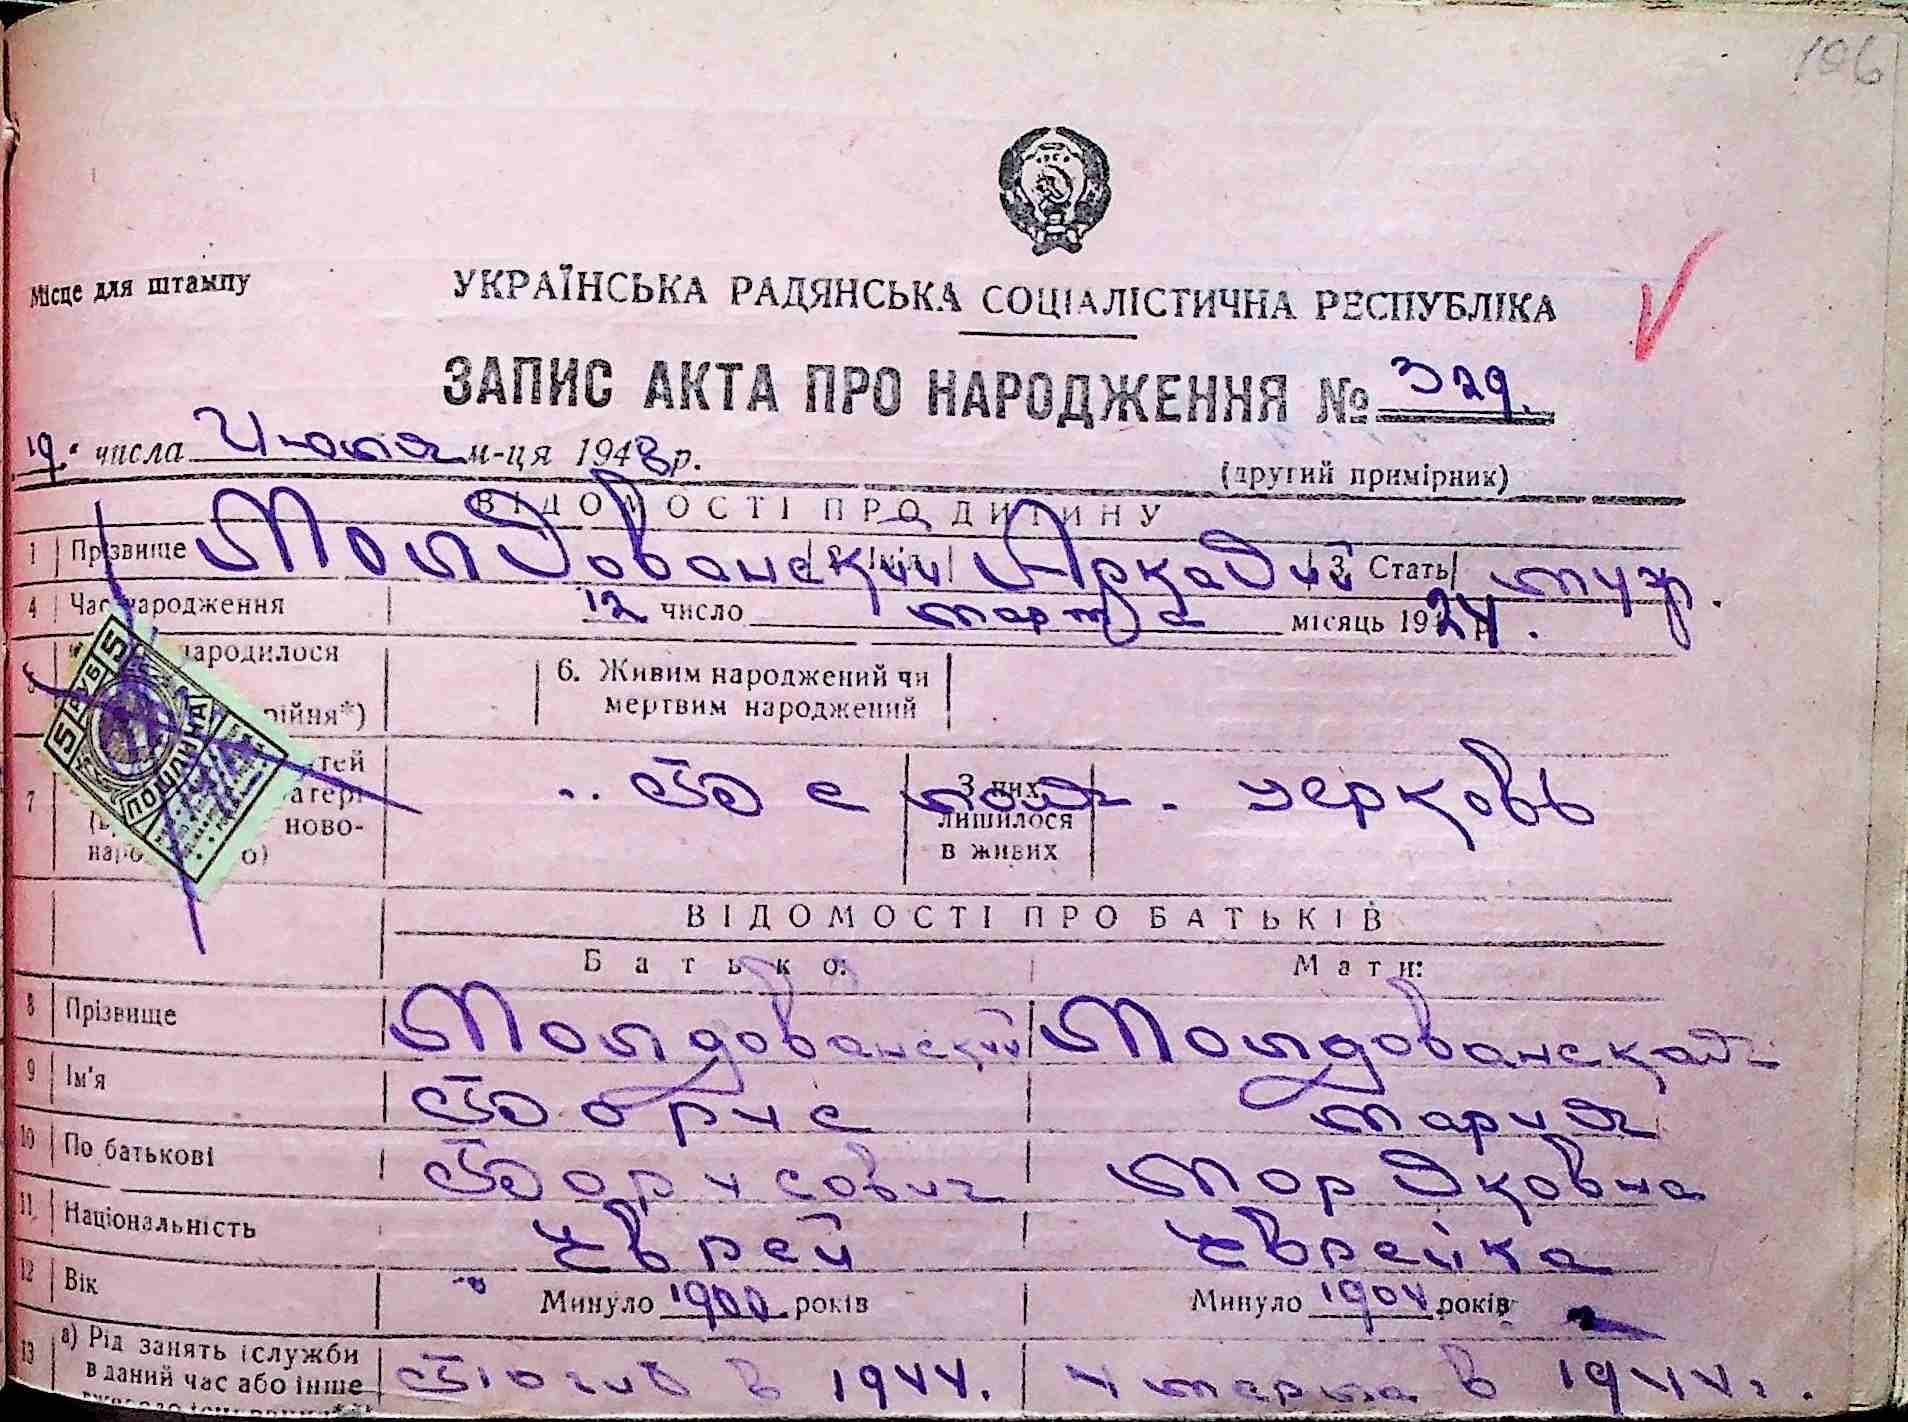 106
Місце для штампу
УКРАЇНСЬКА РАДЯНСЬКА СОЦІАЛІСТИЧНА РЕСПУБЛІКА
ЗАПИС АКТА ПРО НАРОДЖЕННЯ № 329.
19. числа Июля м-ця 1948 р.
(другий примірник)
ВІДОМОСТІ ПРО ДИТИНУ
1 Прізвище Молдованский Аркадий 3. Стать муж.
4 Час народження 12 число марта місяць 1924.
народилося
5 рійня*)
6. Живим народжений чи
мертвим народжений
7 З них
лишилося
в живих
ново-
ВІДОМОСТІ ПРО БАТЬКІВ
Батько: Мати:
8 Прізвище Молдованский Молдованская
9 Ім'я Борис Мария
10 По батькові Борисович Мордковна
11 Національність Еврей Еврейка
12 Вік Минуло 1900 років Минуло 1904 років
13 а) Рід занять (служби
в даний час або інше
Погиб в 1944. Умерла в 1944 г.
5 РУБ 5
ПОШЛИНА